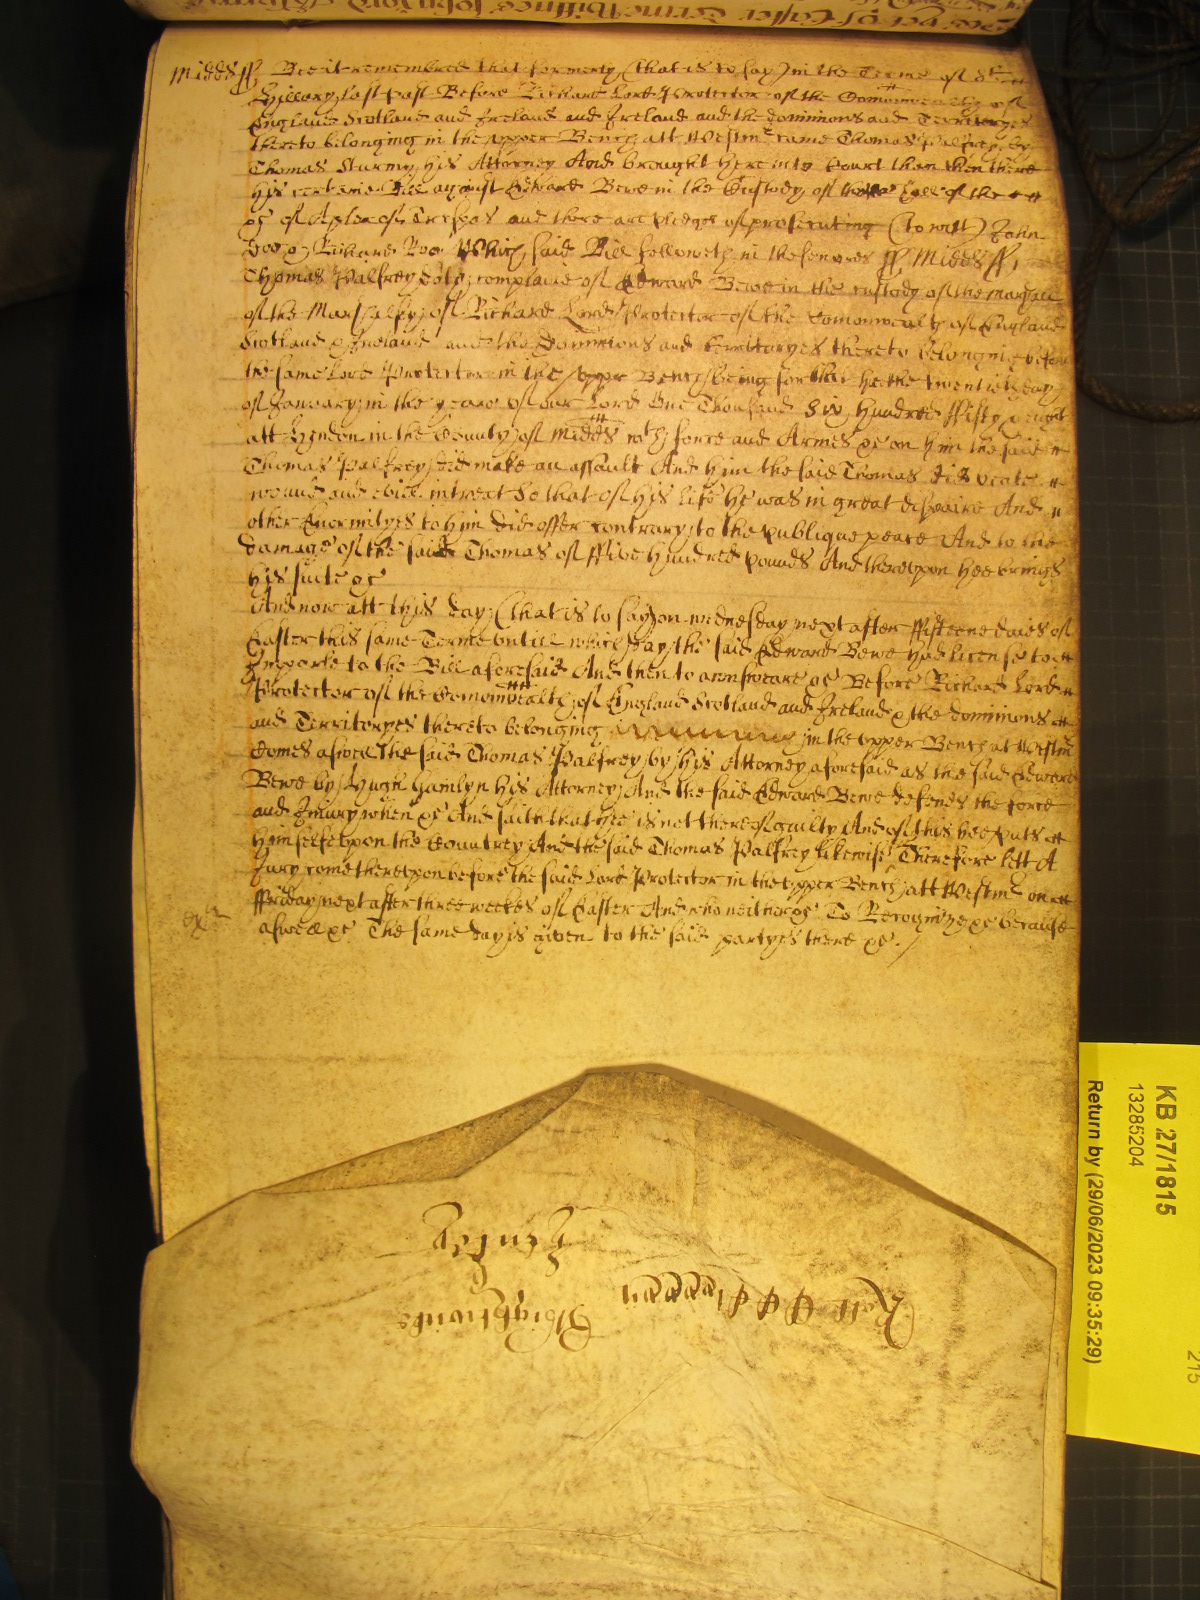 Midds ff Bee it remembred that formerly (that is to say) in the Terme of St
Hillary last past Before Richard Lord Protector of the Comonwealth of
England Scotland and Ireland and Ireland and the dominions and Territoryes
thereto belonging in the upper Bench att Westmr came Thomas Palfrey by
Thomas Sturmy his Attorney And brought here into Court then then there
his certaine Bill against Edward Bewe in the Custody of the
of A plea of Trespas and there are pledges of prosecuting (to witt) John
Doe & Richard Roe Which said Bill followeth in these words ff Midds ff
Thomas Palfrey doth complaine of Edward Bewe in the custody of the Marshall
of the Marshalsey of Richard Lord Protector of the Comonwealth of England
Scotland & Ireland and the Dominions and territoryes thereto belonging before
the same Lord Protector in the upper Bench being for that he the twentieth day
of January in the yeare of our Lord One Thousand Six Hundred Fifty & eight
att in the County of Midds with force and Armes &c on him the said
Thomas Palfrey did make an assault And him the said Thomas did beate
wound and evill intreat So that of his life he was in great dispaire And
other Enormityes to him did offer contrary to the publique peace And to the
damage of the said Thomas of ffive hundred pounds And thereupon hee brings
his suite &c
And now att this day (that is to say) on wednesday next after ffifteene daies of
Easter this same Terme untill which day the said Edward Bewe had license to
Imparle to the Bill aforesaid And then to answeare &c Before Richard Lord
Protector of the Comonwealth of England Scotland and Ireland & the dominions
and Territoryes thereto belonging in the upper Bench at Westmr
Comes aswell the said Thomas Palfrey by his Attorney aforesaid as the said Edward
Bewe by Hugh Hamlyn his Attorney And the said Edward Bewe defends the force
and Injury when &c And saith that hee is not thereof guilty And of this hee putts
himselfe upon the Countrey And the said Thomas Palfrey likewise Therefore lett A
Jury come thereupon before the said Lord Protector in the upper Bench att Westmr on
ffriday next after three weekes of Easter And who neither &c To Recognize &c because
aswell &c The same day is given to the said partyes there &c
KB 27/1815
13285204
Return by (29/06/2023 09:35:29)
215